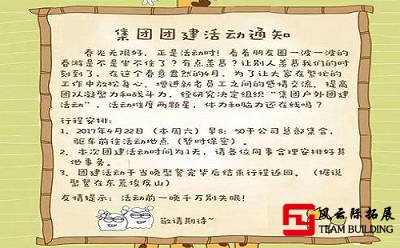 集团团建活动通知
春光无限好，正是活动时！看着朋友圈一波一波的
春游是不是坐不住了？有点羡慕？让别人羡慕我们的时
刻到了，在这个春意盎然的4月，为了让大家在繁忙的
工作中放松身心，增进新老员工之间的感情交流，提高
团队凝聚力和战斗力，经研究决定组织“集团户外团建
活动”。活动难度两颗星，体力和脑力还在线吗？
行程安排：
1、2017年4月22日（本周六）早8：50于公司总部集合，
驱车前往活动地点（暂时保密）。
2、本次团建活动时间为1天，请各位同事合理安排好其
他事务。
3、团建活动于当晚聚餐完毕后结束行程返回。（据说
聚餐在东莞疾山）
友情提示：活动前一晚千万别失眠！
敬请期待~
风云际拓展
TEAM BUILDING